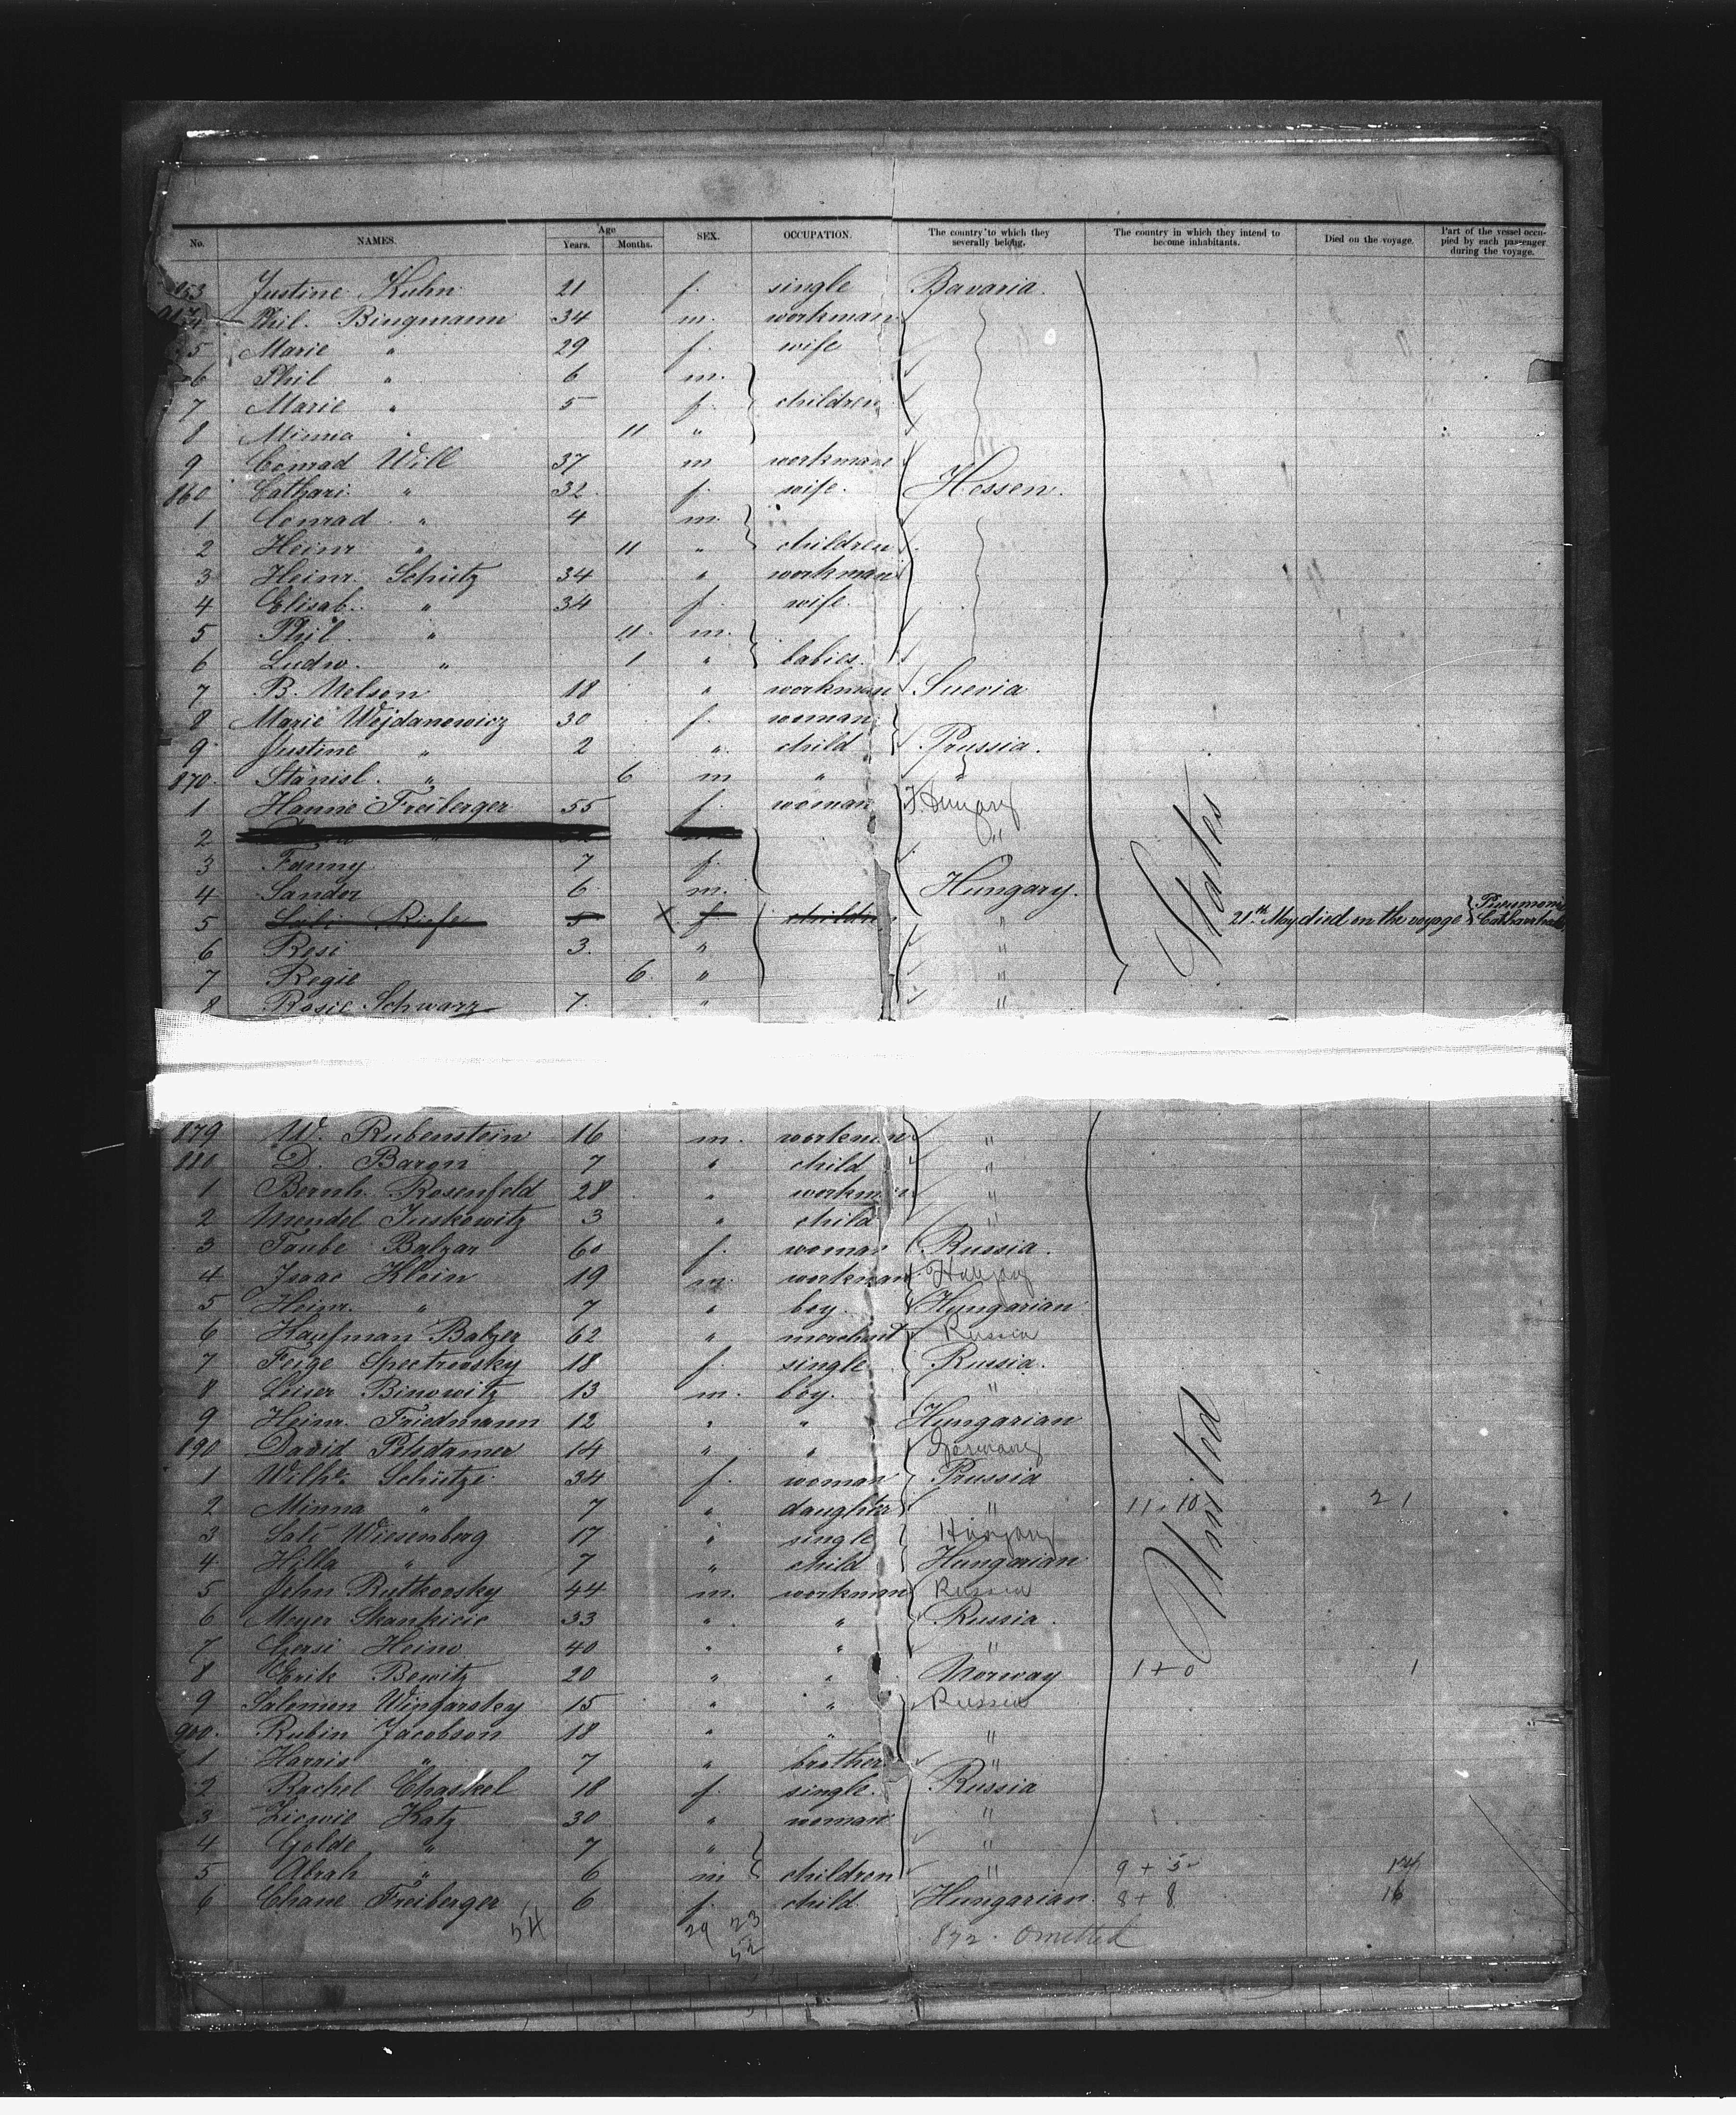 No. NAMES. Age Years. Months. SEX. OCCUPATION. The country to which they severally belong. The country in which they intend to become inhabitants. Died on the voyage. Part of the vessel occupied by each passenger during the voyage.
853 Justine Kuhn 21 f. single Bavaria.
4 Phil. Bingmann 34 m. workman
5 Marie " 29 f. wife
6 Phil " 6 m.
7 Marie " 5 f. children
8 Minna " 11 "
9 Conrad Will 37 m workman
860 Cathari. " 32. f. wife. Hessen.
1 Conrad " 4 m.
2 Heinr " 11 " children
3 Heinr. Schütz 34 " workman
4 Elisab. " 34 f. wife.
5 Phil. " 11. m.
6 Ludw. " 1 " babies.
7 B. Nelson 18 " workman Suevia
8 Marie Wojdanowicz 30 f. woman
9 Justine " 2 " child Prussia.
870. Stanisl. " 6 m " "
1 Hanne Freiberger 55 f. woman Hungary
2 "
3 Fanny 7 f.
4 Sandor 6 m. Hungary.
5 Riefe 5 X f children " 21th May died on the voyage
6 Resi 3. " "
7 Regie 6. " "
8 Rosie Schwarz 7. " "
States
879 W. Rubenstein 16 m. workman "
880 D. Baron 7 " child "
1 Bernh. Rosenfeld 28 " workman "
2 Mendel Juskowitz 3 " child "
3 Taube Balzar 60 f. woman Russia.
4 Isaac Klein 19 m. workman Hungary
5 Heinr. " 7 " boy. Hungarian
6 Kaufman Balzer 62 " merchant Russia
7 Feige Spectrowsky 18 f. single Russia.
8 Leiser Binowitz 13 m. boy. "
9 Heinr. Friedmann 12 " " Hungarian
890 David Potsdamer 14 " " Germany
1 Wilh. Schütze 34 f. woman Prussia
2 Minna " 7 " daughter " 11 + 10 21
3 Sali Wiesenberg 17 " single Hungary
4 Hilla " 7 " child Hungarian
5 John Rutkowsky 44 m. workman Russia
6 Meyer 33 " " Russia.
7 Gersi Heino 40 " " "
8 Erik Bewitz 20 " " Norway 1 + 0 1
9 Salomon Wingarsky 15 " " Russia
900. Rubin Jacobson 18 " " "
1 Harris " 7 " brother "
2 Rachel Chaskel 18 f. single. Russia
3 Katz 30 " woman "
4 Golde " 7 " "
5 Abrah " 6 m children " 9 + 5 14
6 Chane Freiberger 6 f. child Hungarian. 8 + 8 16
United
54 29 23 872. Omitted
52